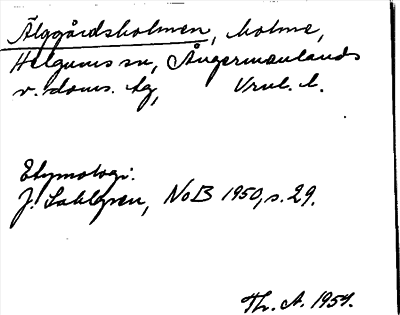 Älggårdsholmen, holme,
Helgums sn, Ångermanlands
v. doms. tg, Vrnl. l.
Etymologi.
J. Sahlgren, NoB 1950, s. 29.
Th. A. 1954.